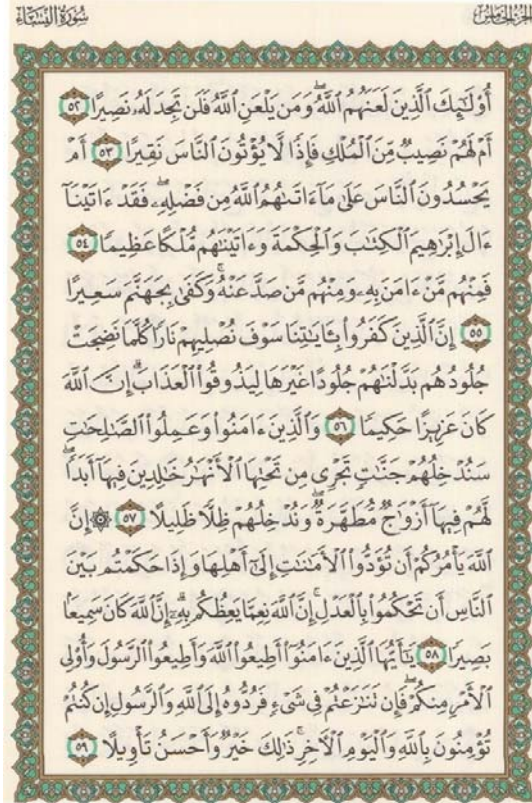 الجزء الخامس
سُورَةُ النِّسَاءِ
أُوْلَٰٓئِكَ ٱلَّذِينَ لَعَنَهُمُ ٱللَّهُۖ وَمَن يَلْعَنِ ٱللَّهُ فَلَن تَجِدَ لَهُۥ نَصِيرًا ٥٢
أَمْ لَهُمْ نَصِيبٌ مِّنَ ٱلْمُلْكِ فَإِذًا لَّا يُؤْتُونَ ٱلنَّاسَ نَقِيرًا ٥٣ أَمْ
يَحْسُدُونَ ٱلنَّاسَ عَلَىٰ مَآ ءَاتَىٰهُمُ ٱللَّهُ مِن فَضْلِهِۦۖ فَقَدْ ءَاتَيْنَآ
ءَالَ إِبْرَٰهِيمَ ٱلْكِتَٰبَ وَٱلْحِكْمَةَ وَءَاتَيْنَٰهُم مُّلْكًا عَظِيمًا ٥٤
فَمِنْهُم مَّنْ ءَامَنَ بِهِۦ وَمِنْهُم مَّن صَدَّ عَنْهُۚ وَكَفَىٰ بِجَهَنَّمَ سَعِيرًا
٥٥ إِنَّ ٱلَّذِينَ كَفَرُوا۟ بِـَٔايَٰتِنَا سَوْفَ نُصْلِيهِمْ نَارًا كُلَّمَا نَضِجَتْ
جُلُودُهُم بَدَّلْنَٰهُمْ جُلُودًا غَيْرَهَا لِيَذُوقُوا۟ ٱلْعَذَابَۗ إِنَّ ٱللَّهَ
كَانَ عَزِيزًا حَكِيمًا ٥٦ وَٱلَّذِينَ ءَامَنُوا۟ وَعَمِلُوا۟ ٱلصَّٰلِحَٰتِ
سَنُدْخِلُهُمْ جَنَّٰتٍ تَجْرِى مِن تَحْتِهَا ٱلْأَنْهَٰرُ خَٰلِدِينَ فِيهَآ أَبَدًاۖ
لَّهُمْ فِيهَآ أَزْوَٰجٌ مُّطَهَّرَةٌۖ وَنُدْخِلُهُمْ ظِلًّا ظَلِيلًا ٥٧ ۞ إِنَّ
ٱللَّهَ يَأْمُرُكُمْ أَن تُؤَدُّوا۟ ٱلْأَمَٰنَٰتِ إِلَىٰٓ أَهْلِهَا وَإِذَا حَكَمْتُم بَيْنَ
ٱلنَّاسِ أَن تَحْكُمُوا۟ بِٱلْعَدْلِۚ إِنَّ ٱللَّهَ نِعِمَّا يَعِظُكُم بِهِۦٓۗ إِنَّ ٱللَّهَ كَانَ سَمِيعًۢا
بَصِيرًا ٥٨ يَٰٓأَيُّهَا ٱلَّذِينَ ءَامَنُوٓا۟ أَطِيعُوا۟ ٱللَّهَ وَأَطِيعُوا۟ ٱلرَّسُولَ وَأُو۟لِى
ٱلْأَمْرِ مِنكُمْۖ فَإِن تَنَٰزَعْتُمْ فِى شَىْءٍ فَرُدُّوهُ إِلَى ٱللَّهِ وَٱلرَّسُولِ إِن كُنتُمْ
تُؤْمِنُونَ بِٱللَّهِ وَٱلْيَوْمِ ٱلْءَاخِرِۚ ذَٰلِكَ خَيْرٌ وَأَحْسَنُ تَأْوِيلًا ٥٩